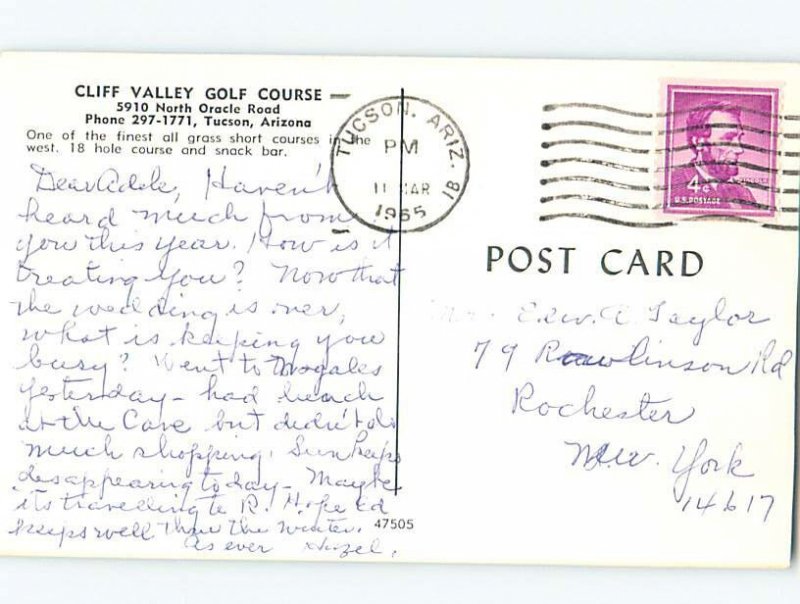 CLIFF VALLEY GOLF COURSE
5910 North Oracle Road
Phone 297-1771, Tucson, Arizona
One of the finest all grass short courses in the
west. 18 hole course and snack bar.
Dear Adele, Haven't
heard much from
you this year. How is it
treating you? Now that
the wedding is over,
what is keeping you
busy? Went to Nogales
yesterday - had lunch
at the Cave but didn't do
much shopping. Sun keeps
disappearing today - Maybe
its travelling to R. Hope Ed
keeps well thru the winter.
As ever Hazel.
47505
TUCSON, ARIZ. 18
PM
11 MAR
1965
LINCOLN
4¢
U.S. POSTAGE
POST CARD
Edw. A. Taylor
79 Rawlinson Rd
Rochester
New York
14617